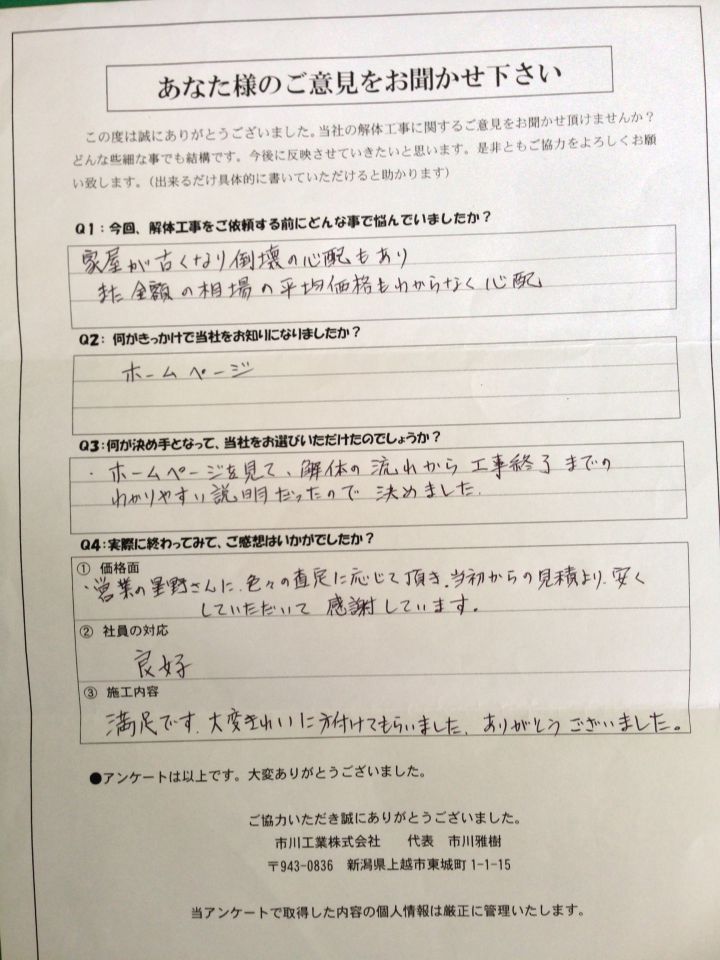 あなた様のご意見をお聞かせ下さい
この度は誠にありがとうございました。当社の解体工事に関するご意見をお聞かせ頂けませんか？
どんな些細な事でも結構です。今後に反映させていきたいと思います。是非ともご協力をよろしくお願
い致します。（出来るだけ具体的に書いていただけると助かります）
Q1：今回、解体工事をご依頼する前にどんな事で悩んでいましたか？
家屋が古くなり倒壊の心配もあり
また金額の相場の平均価格もわからなく心配
Q2：何がきっかけで当社をお知りになりましたか？
ホームページ
Q3：何が決め手となって、当社をお選びいただけたのでしょうか？
・ホームページを見て、解体の流れから工事終了までの
わかりやすい説明だったので決めました.
Q4：実際に終わってみて、ご感想はいかがでしたか？
① 価格面
・営業の星野さんに、色々の査定に応じて頂き、当初からの見積より、安く
していただいて感謝しています。
② 社員の対応
良好
③ 施工内容
満足です、大変きれいに方付けてもらいました、ありがとうございました。
●アンケートは以上です。大変ありがとうございました。
ご協力いただき誠にありがとうございました。
市川工業株式会社　代表　市川雅樹
〒943-0836　新潟県上越市東城町1-1-15
当アンケートで取得した内容の個人情報は厳正に管理いたします。